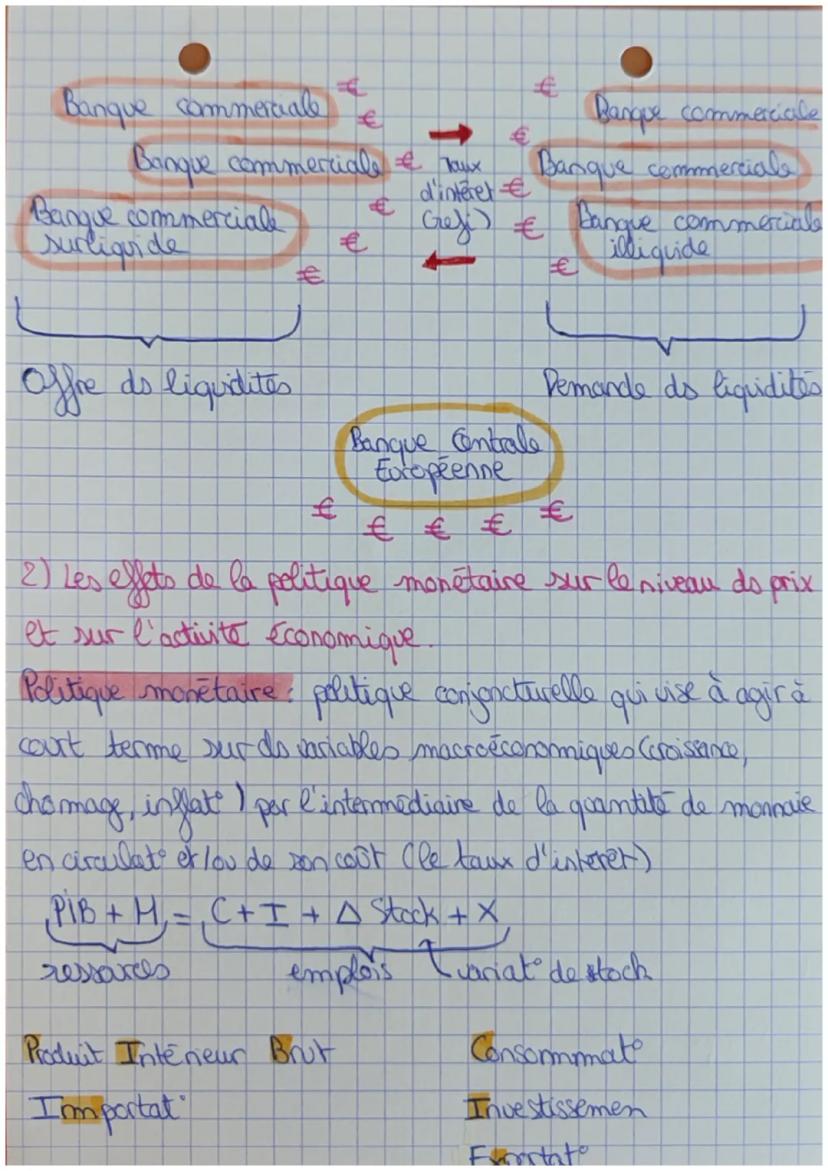 Banque commerciale € € Banque commerciale
€ €
Banque commerciale € Taux Banque commerciale
d'intérêt €
Banque commerciale € (refi) € Banque commerciale
surliquide € illiquide
€ €
Offre ds liquidités Demande ds liquidités
Banque Centrale
Européenne
€ € € € €
2) Les effets de la politique monétaire sur le niveau ds prix
et sur l'activité économique.
Politique monétaire : politique conjoncturelle qui vise à agir à
court terme sur ds variables macroéconomiques (croissance,
chomage, inflat°) par l'intermédiaire de la quantité de monnaie
en circulat° et/ou de son coût (le taux d'intérêt)
PIB + M = C + I + Δ Stock + X
ressources emplois variat° de stock
Produit Intérieur Brut Consommmat°
Importat° Investissemen
Exportat°